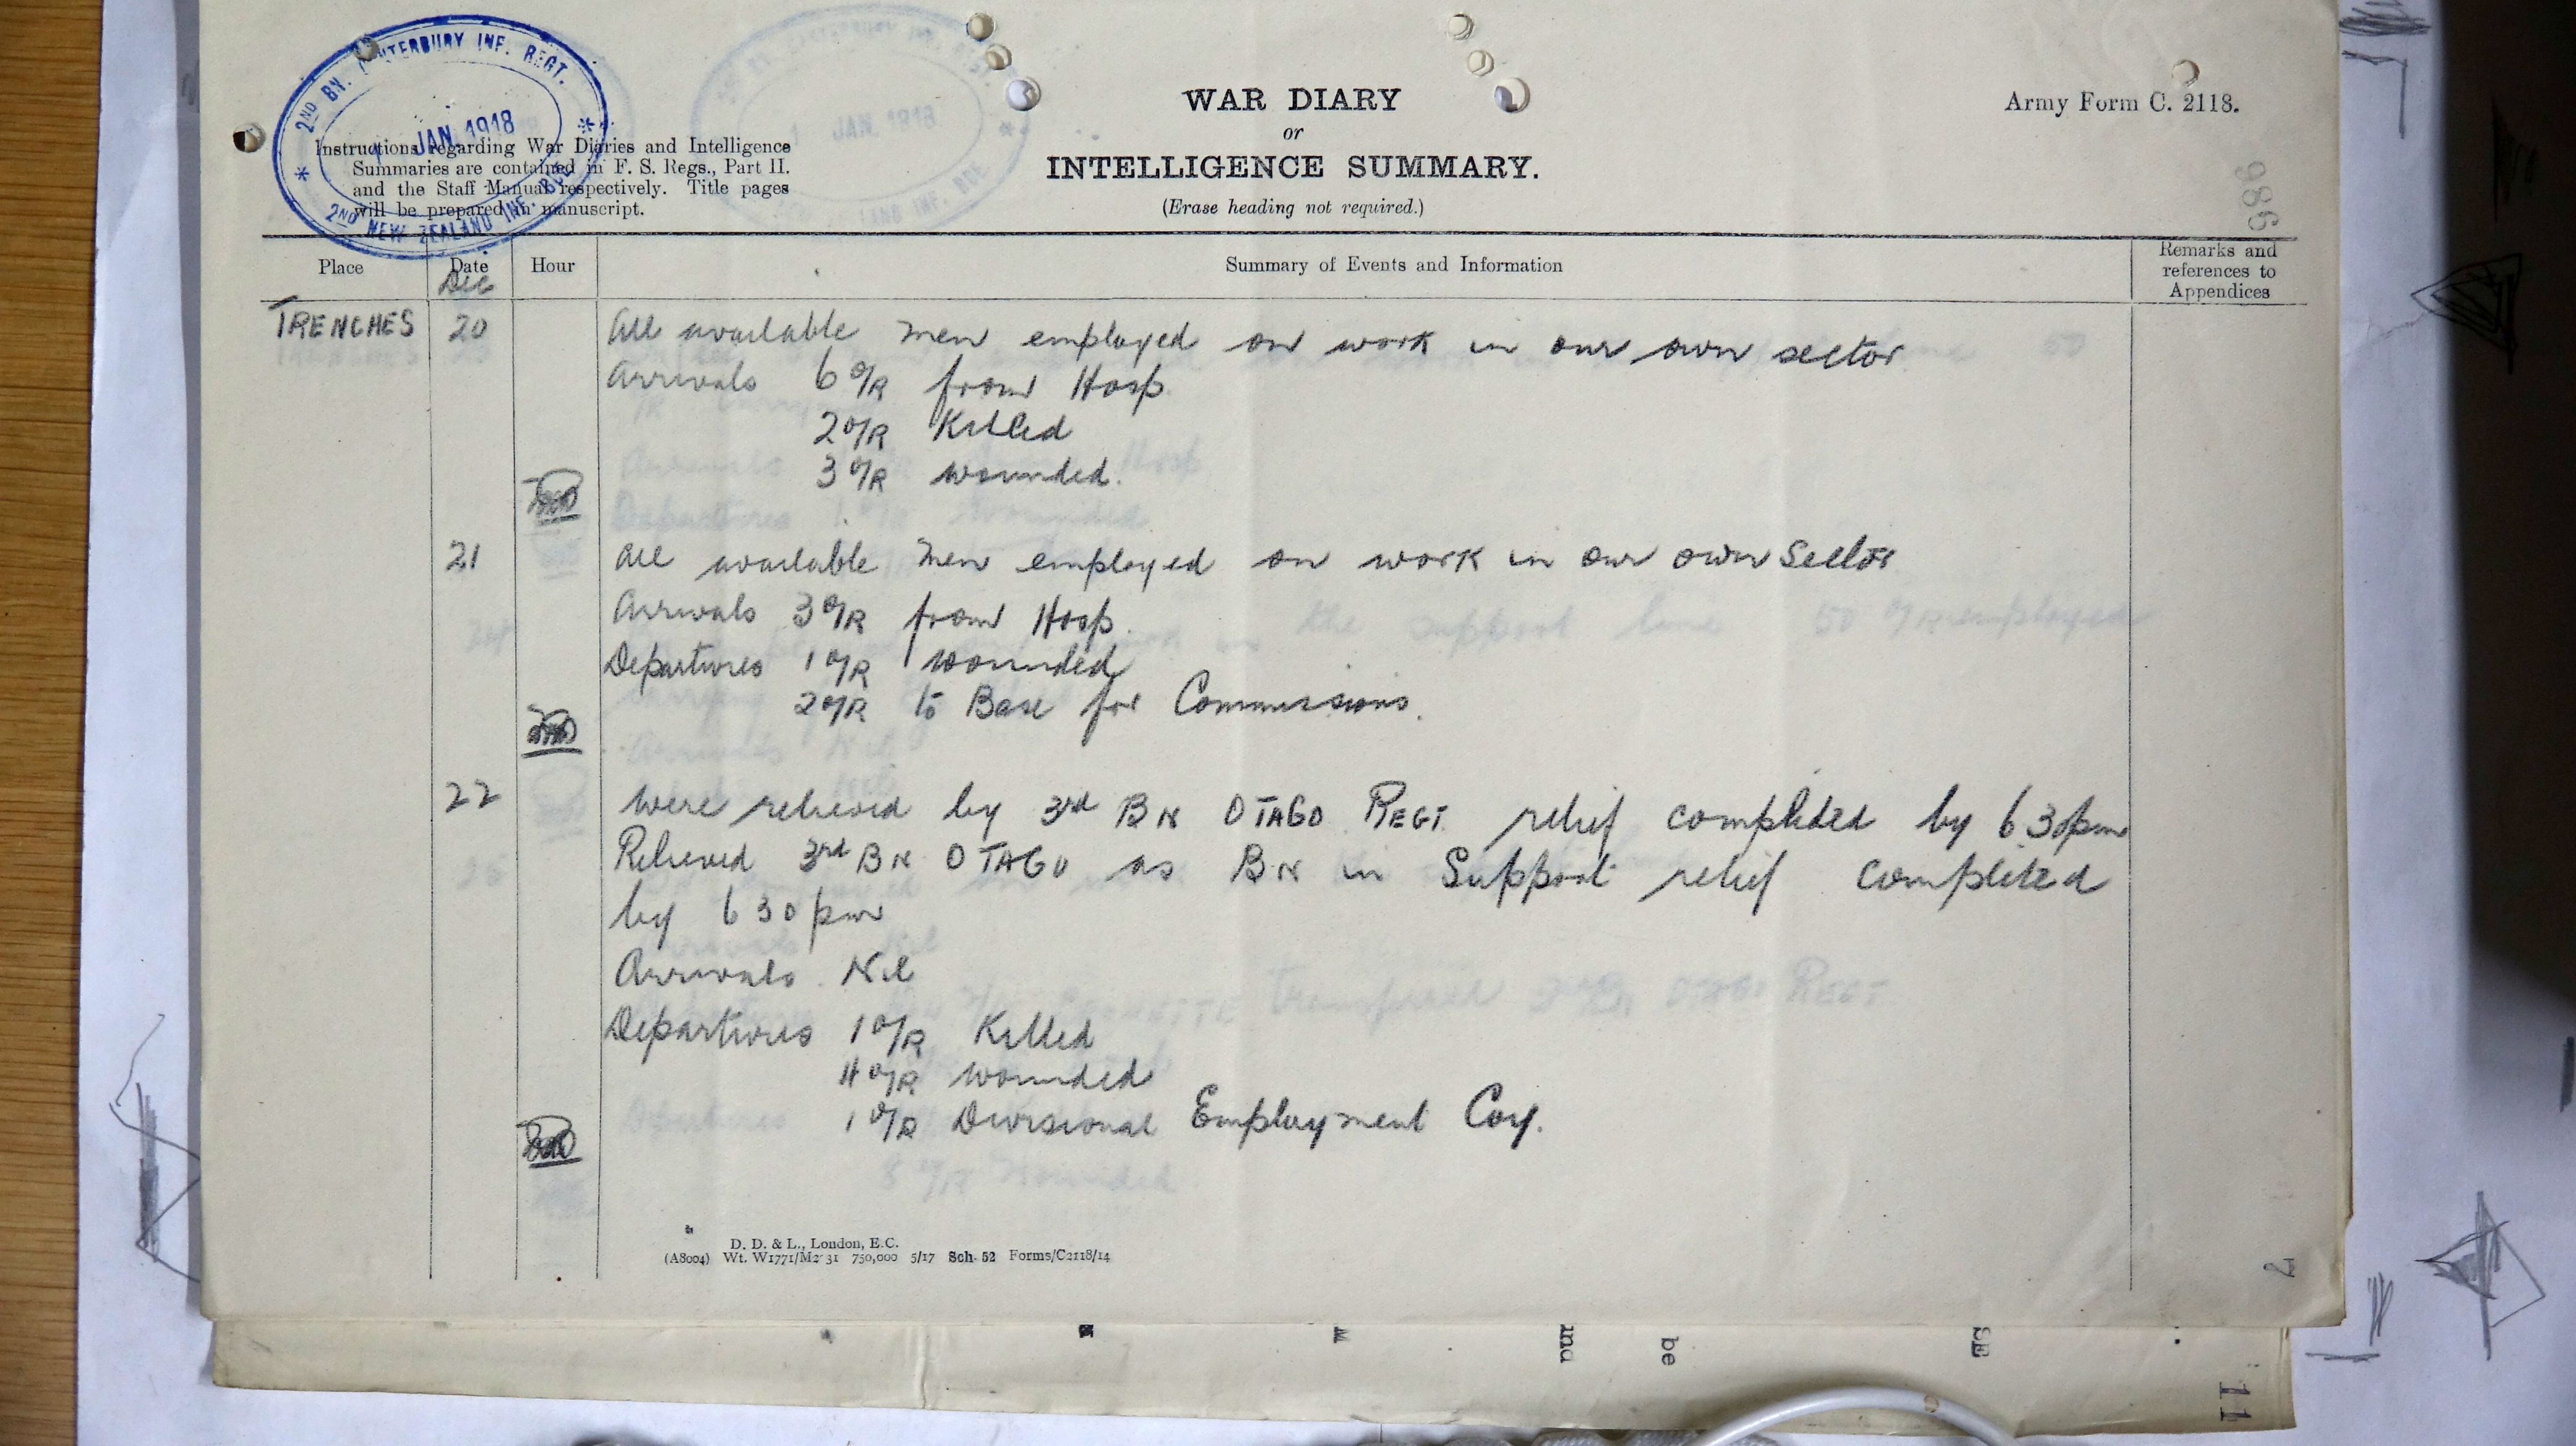 2ND BN. CANTERBURY INF. REGT.
1 JAN. 1918
2ND NEW ZEALAND INF. BDE.
Instructions regarding War Diaries and Intelligence
Summaries are contained in F. S. Regs., Part II.
and the Staff Manual respectively. Title pages
will be prepared in manuscript.
WAR DIARY
or
INTELLIGENCE SUMMARY.
(Erase heading not required.)
Army Form C. 2118.
986
Place Date Hour Summary of Events and Information Remarks and references to Appendices
Dec
TRENCHES 20 All available men employed on work in our own sector
Arrivals 6 O/R from Hosp.
2 O/R Killed
3 O/R wounded.
21 All available men employed on work in our own sector
Arrivals 3 O/R from Hosp.
Departures 1 O/R wounded
2 O/R to Base for Commissions.
22 Were relieved by 3rd BN OTAGO REGT. relief completed by 6 30pm
Relieved 3rd BN OTAGO as BN in Support relief completed
by 6 30 pm
Arrivals Nil
Departures 1 O/R Killed
O/R wounded
1 O/R Divisional Employment Coy.
D. D. & L., London, E.C.
(A8004) Wt. W1771/M2 31 750,000 5/17 Sch. 52 Forms/C2118/14
7
be
11